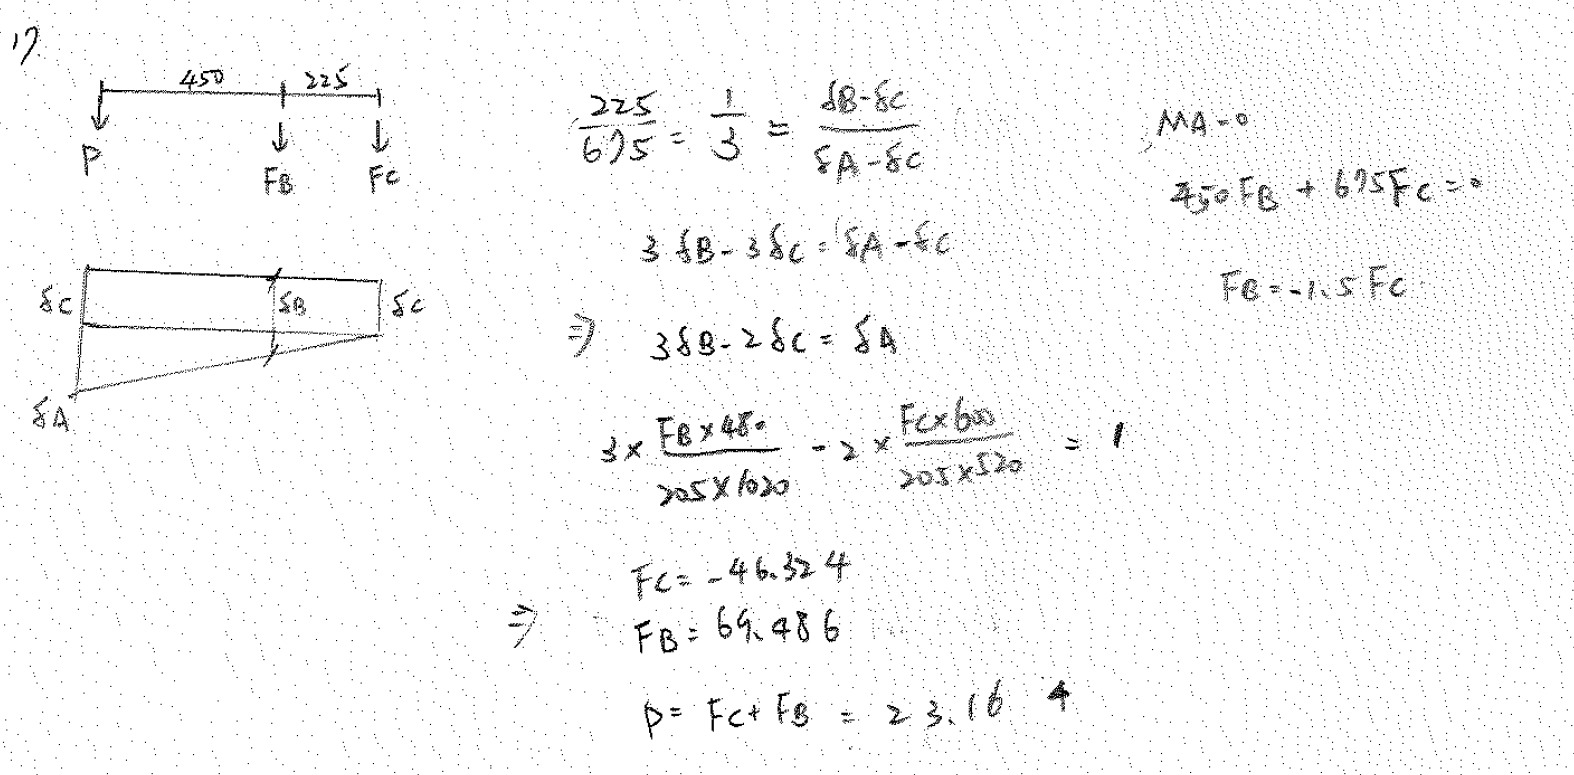 17
450 225
P FB FC
δC δB δC
δA
225/675 = 1/3 = δB-δC/δA-δC
3δB-3δC = δA-δC
⇒ 3δB-2δC = δA
3 × FB×480/205×1020 - 2 × FC×600/205×520 = 1
FC = -46.324
⇒ FB = 69.486
P = FC+FB = 23.164
MA=0
450FB + 675FC = 0
FB = -1.5FC